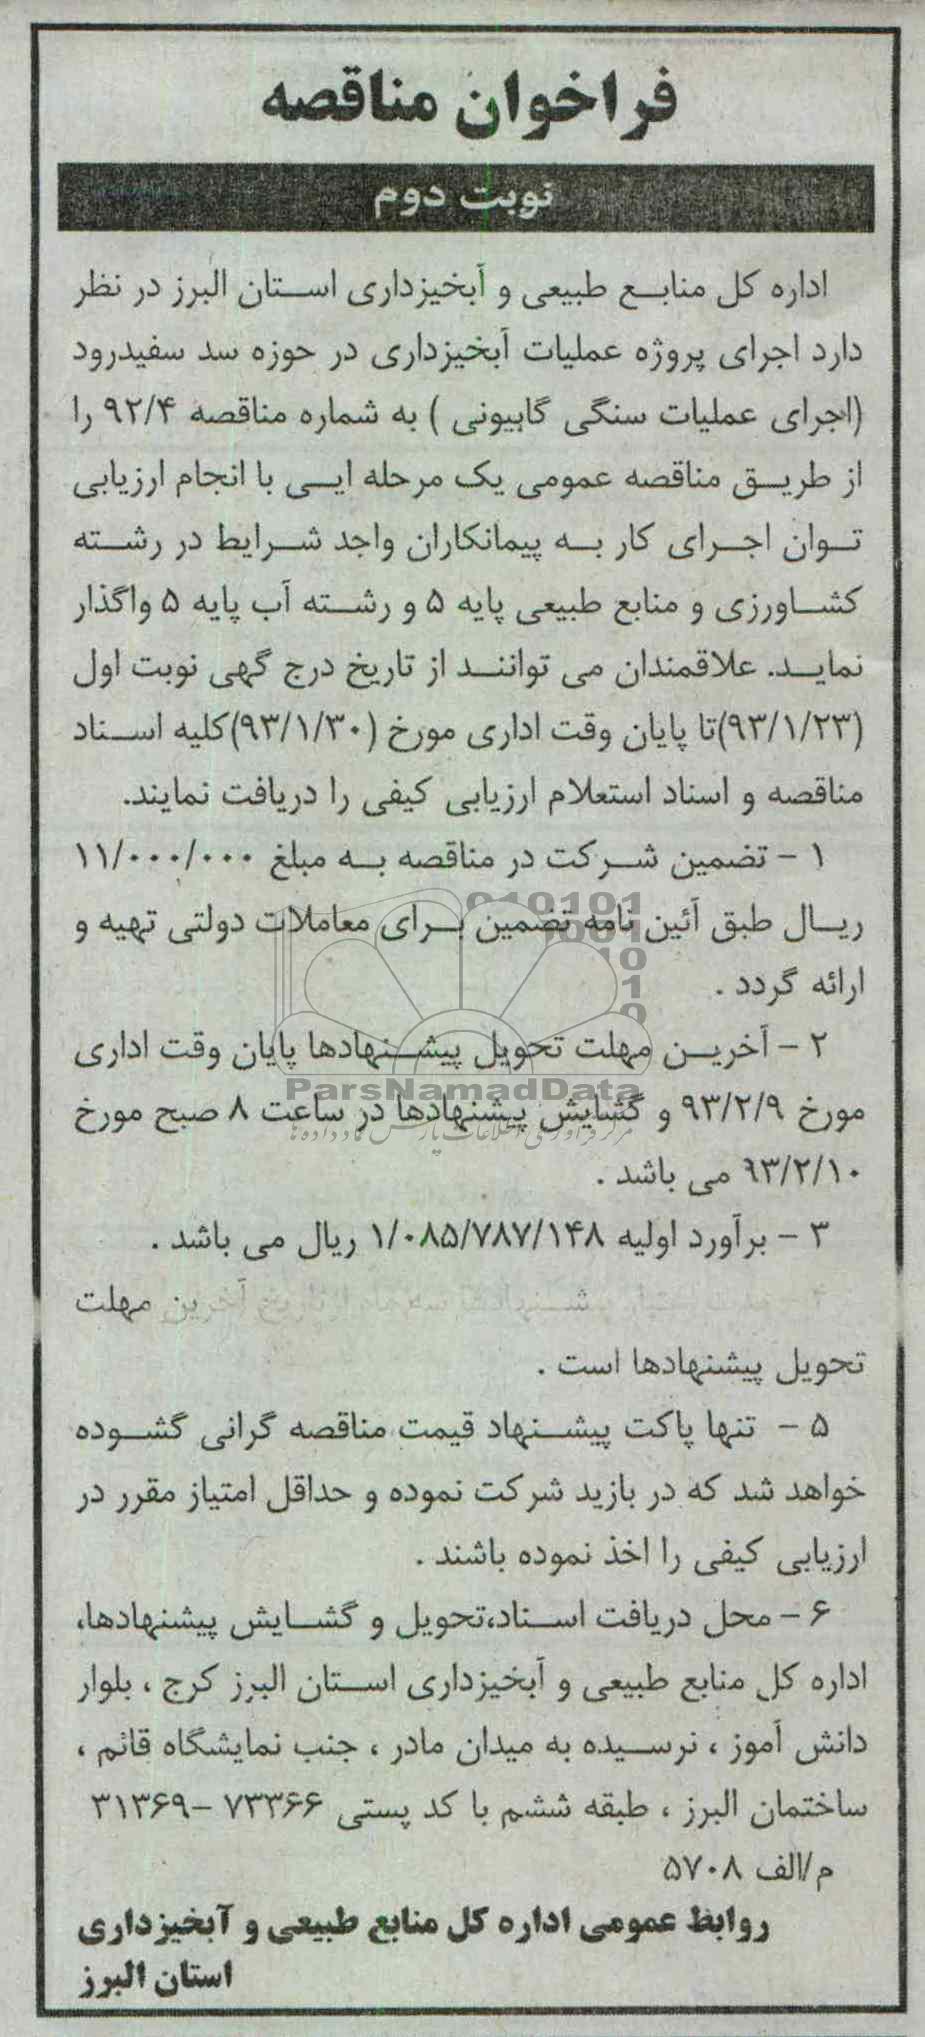 فراخوان مناقصه
نوبت دوم
اداره کل منابع طبیعی و آبخیزداری استان البرز در نظر
دارد اجرای پروژه عملیات آبخیزداری در حوزه سد سفیدرود
(اجرای عملیات سنگی گابیونی ) به شماره مناقصه ۹۲/۴ را
از طریق مناقصه عمومی یک مرحله ایی با انجام ارزیابی
توان اجرای کار به پیمانکاران واجد شرایط در رشته
کشاورزی و منابع طبیعی پایه ۵ و رشته آب پایه ۵ واگذار
نماید. علاقمندان می توانند از تاریخ درج گهی نوبت اول
(۹۳/۱/۲۳)تا پایان وقت اداری مورخ (۹۳/۱/۳۰)کلیه اسناد
مناقصه و اسناد استعلام ارزیابی کیفی را دریافت نمایند.
۱ - تضمین شرکت در مناقصه به مبلغ ۱۱/۰۰۰/۰۰۰
ریال طبق آئین نامه تضمین برای معاملات دولتی تهیه و
ارائه گردد .
۲ - آخرین مهلت تحویل پیشنهادها پایان وقت اداری
مورخ ۹۳/۲/۹ و گشایش پیشنهادها در ساعت ۸ صبح مورخ
۹۳/۲/۱۰ می باشد .
۳ - برآورد اولیه ۱/۰۸۵/۷۸۷/۱۴۸ ریال می باشد .
تاریخ آخرین مهلت
تحویل پیشنهادها است .
۵ - تنها پاکت پیشنهاد قیمت مناقصه گرانی گشوده
خواهد شد که در بازید شرکت نموده و حداقل امتیاز مقرر در
ارزیابی کیفی را اخذ نموده باشند .
۶ - محل دریافت اسناد،تحویل و گشایش پیشنهادها،
اداره کل منابع طبیعی و آبخیزداری استان البرز کرج ، بلوار
دانش آموز ، نرسیده به میدان مادر ، جنب نمایشگاه قائم ،
ساختمان البرز ، طبقه ششم با کد پستی ۷۳۳۶۶ -۳۱۳۶۹
م/الف ۵۷۰۸
روابط عمومی اداره کل منابع طبیعی و آبخیزداری
استان البرز
010101
001
10
1
0
ParsNamadData
مرکز فرآوری اطلاعات پارس نماد داده ها